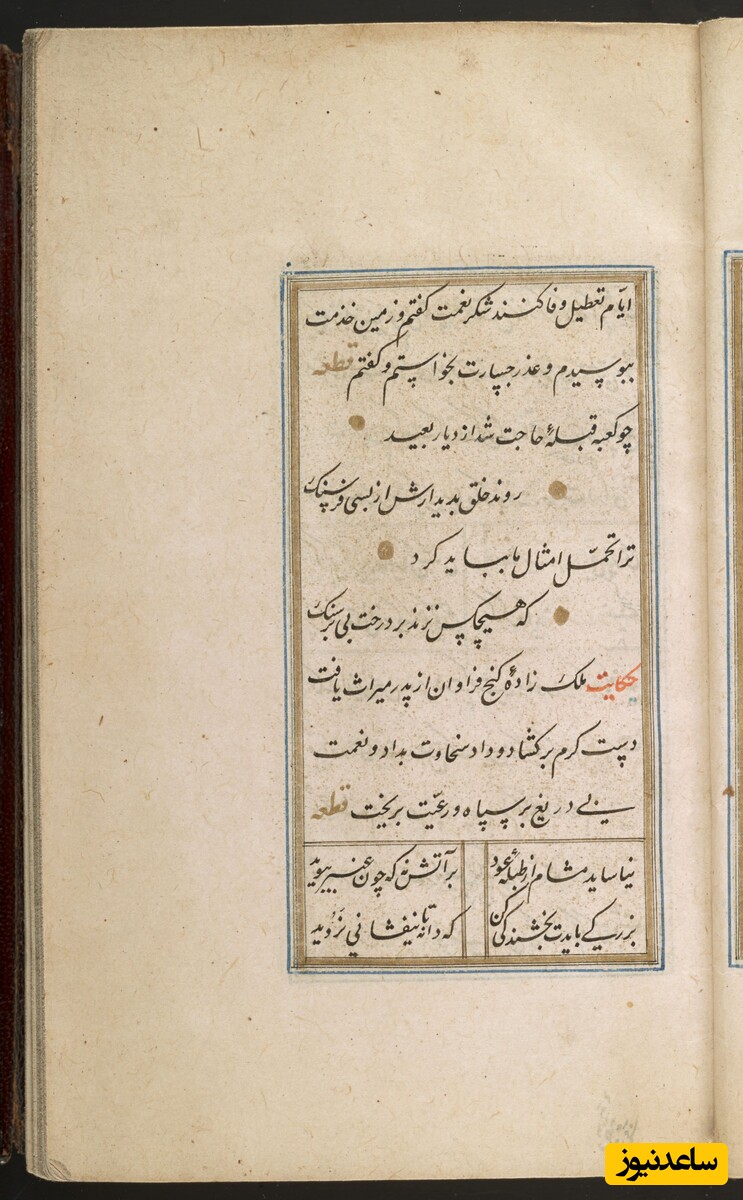 ایّام تعطیل وفا کنند شکر نعمت کفتم و زمین خذمت
ببوسیدم و عذر جسارت بخواستم و کفتم قطعه
چو کعبه قبلهٔ حاجت شد از دیار بعید
روند خلق بدیدارش از بسی فرسنک
ترا تحمّل امثال ما بباید کرد
که هیچکس نزند بر درخت بی بر سنک
حکایت ملک زادهٔ کنج فراوان از پدر میراث یافت
دست کرم برکشاد و داد سخاوت بداد و نعمت
بی دریغ بر سپاه و رعیّت بریخت قطعه
نیاساید مشام از طبلهٔ عود بر آتش نه که چون عنبر ببوید
بزرکی بایدت بخشندکی کن که دانه تا نیفشانی نروید
ساعدنیوز